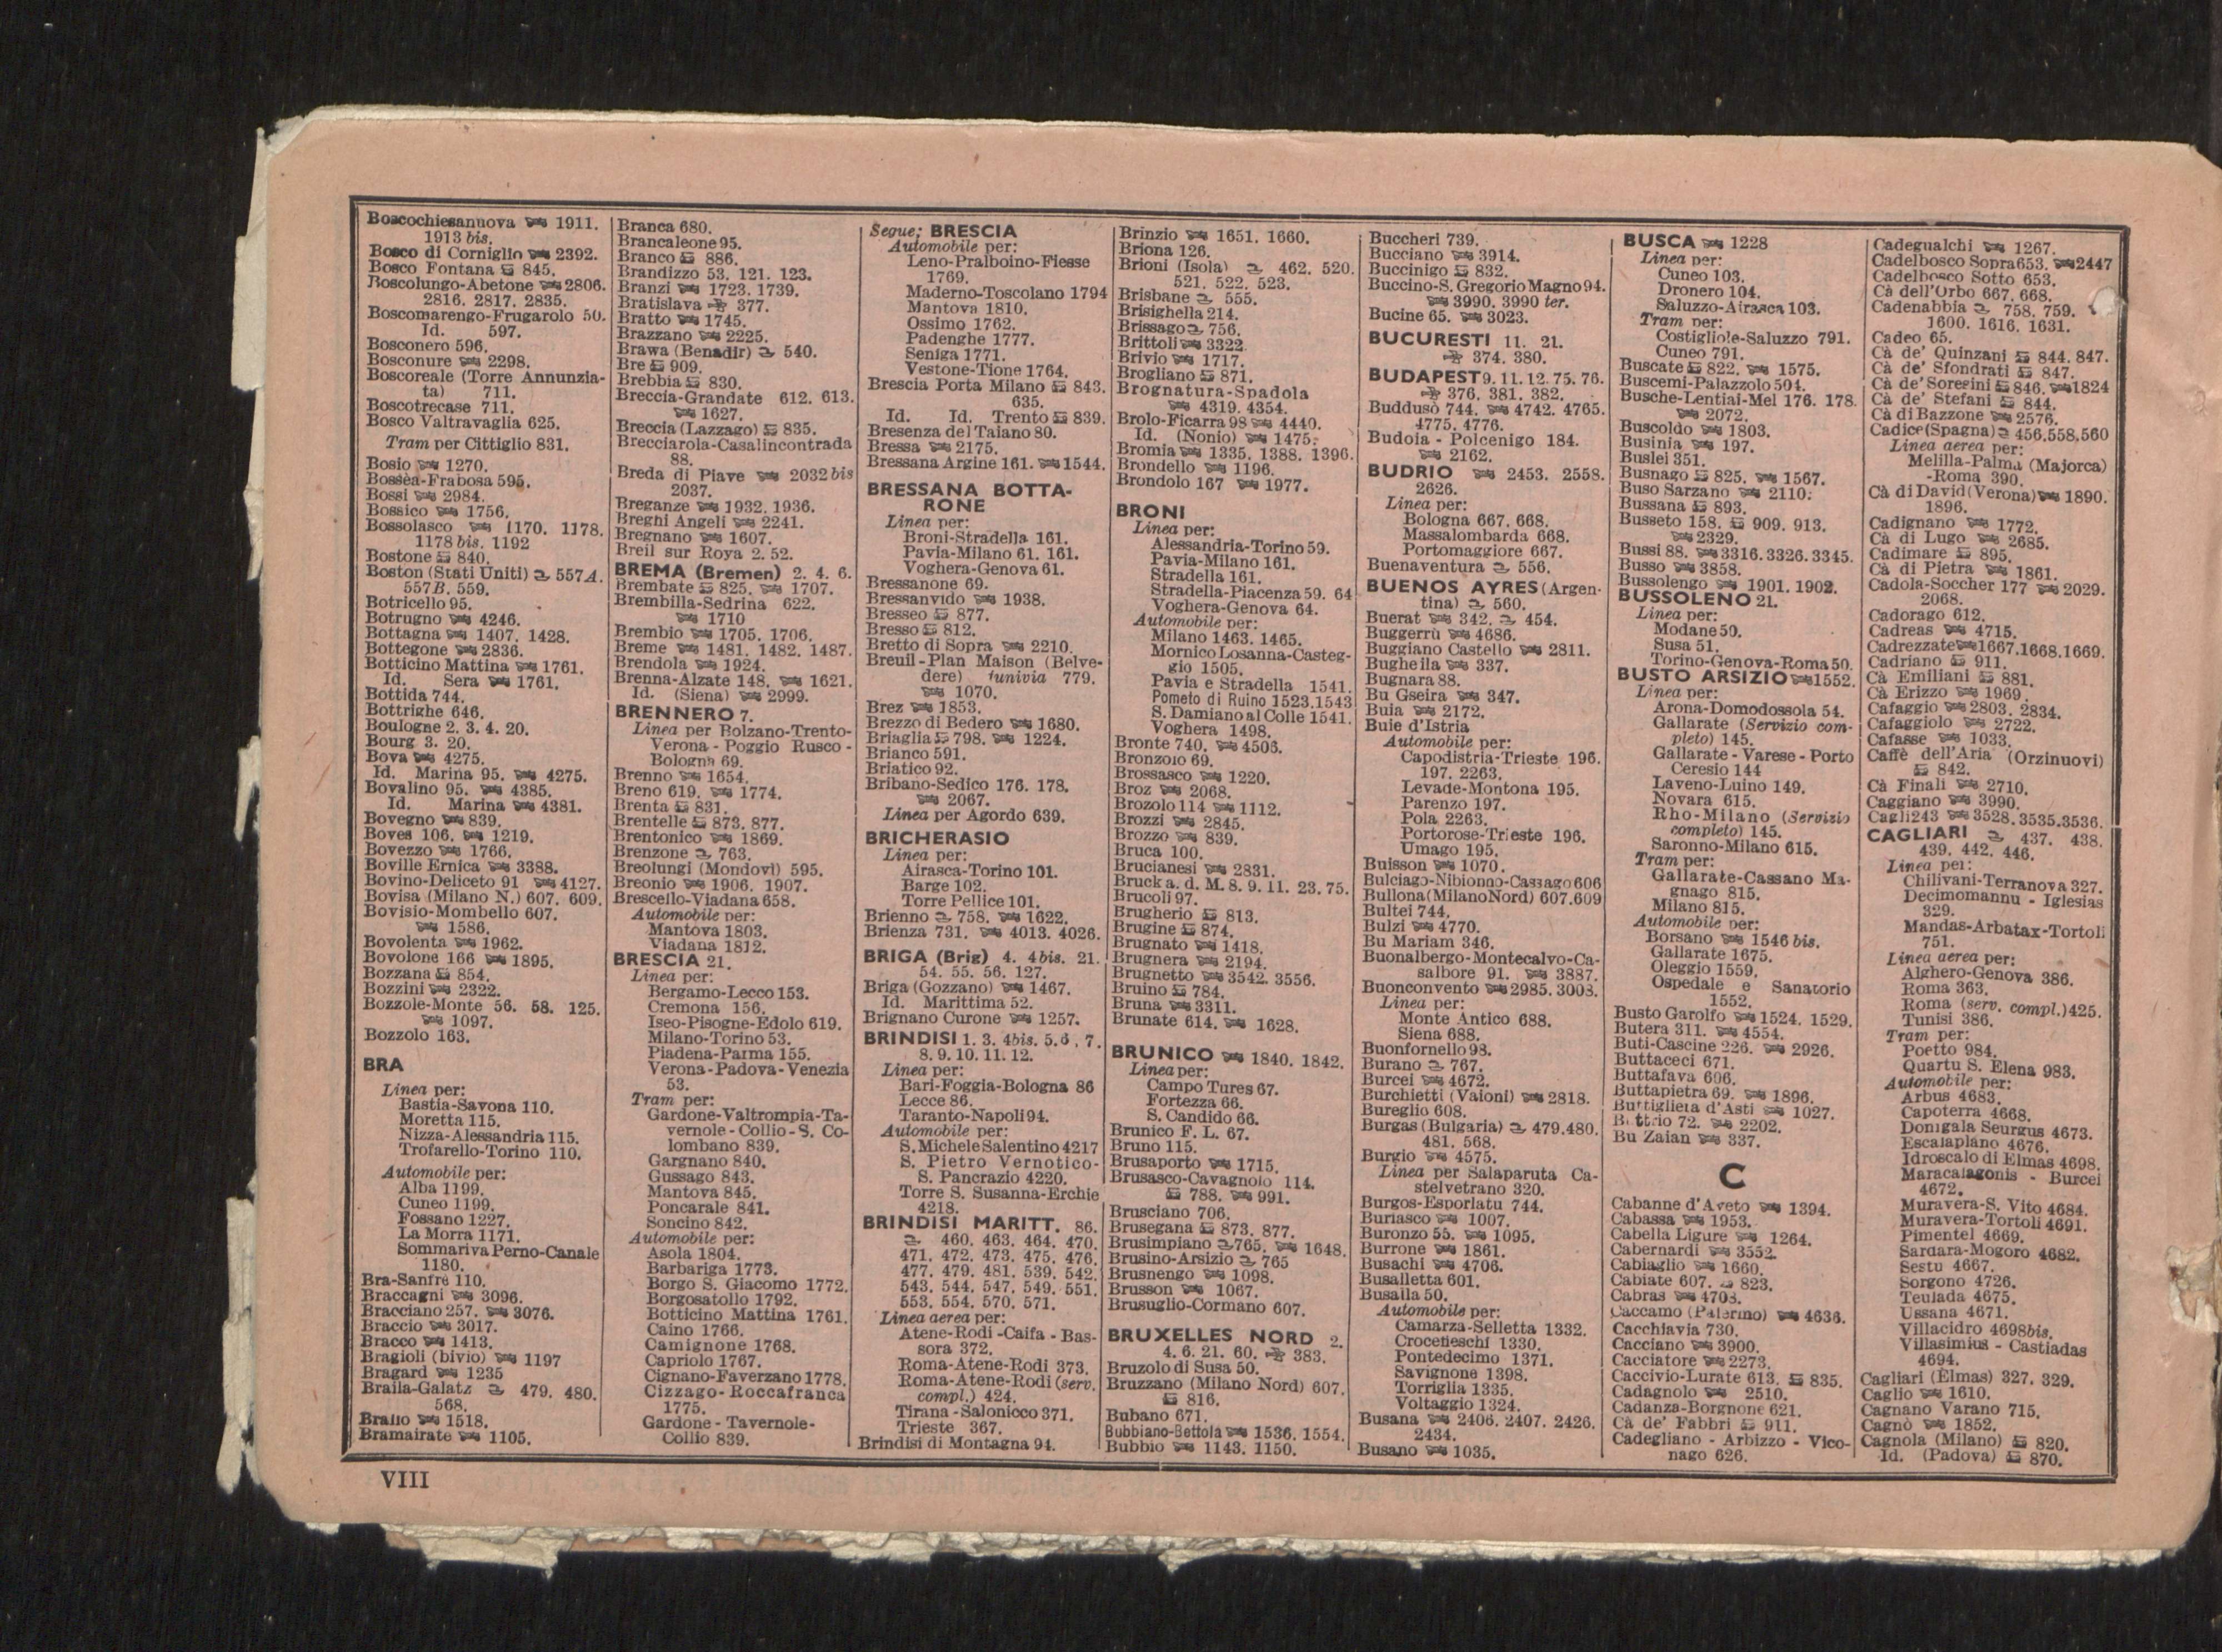 Boscochiesanuova 1911.
1913 bis.
Bosco di Corniglio 2392.
Bosco Fontana 845.
Boscolungo-Abetone 2806.
2816. 2817. 2835.
Boscomarengo-Frugarolo 50.
Id. 597.
Bosconero 596.
Bosconure 2298.
Boscoreale (Torre Annunzia-
ta) 711.
Boscotrecase 711.
Bosco Valtravaglia 625.
Tram per Cittiglio 831.
Bosio 1270.
Bossèa-Frabosa 595.
Bossi 2984.
Bossico 1756.
Bossolasco 1170. 1178.
1178 bis. 1192
Bostone 840.
Boston (Stati Uniti) 557A.
557B. 559.
Botricello 95.
Botrugno 4246.
Bottagna 1407. 1428.
Bottegone 2836.
Botticino Mattina 1761.
Id. Sera 1761.
Bottida 744.
Bottrighe 646.
Boulogne 2. 3. 4. 20.
Bourg 3. 20.
Bova 4275.
Id. Marina 95. 4275.
Bovalino 95. 4385.
Id. Marina 4381.
Bovegno 839.
Boves 106. 1219.
Bovezzo 1766.
Boville Ernica 3388.
Bovino-Deliceto 91 4127.
Bovisa (Milano N.) 607. 609.
Bovisio-Mombello 607.
1586.
Bovolenta 1962.
Bovolone 166 1895.
Bozzana 854.
Bozzini 2322.
Bozzole-Monte 56. 58. 125.
1097.
Bozzolo 163.
BRA
Linea per:
Bastia-Savona 110.
Moretta 115.
Nizza-Alessandria 115.
Trofarello-Torino 110.
Automobile per:
Alba 1199.
Cuneo 1199.
Fossano 1227.
La Morra 1171.
Sommariva Perno-Canale
1180.
Bra-Sanfrè 110.
Braccagni 3096.
Bracciano 257. 3076.
Braccio 3017.
Bracco 1413.
Bragioli (bivio) 1197
Bragard 1235
Braila-Galatz 479. 480.
568.
Brallo 1518.
Bramairate 1105.
Branca 680.
Brancaleone 95.
Branco 886.
Brandizzo 53. 121. 123.
Branzi 1723. 1739.
Bratislava 377.
Bratto 1745.
Brazzano 2225.
Brawa (Benadir) 540.
Bre 909.
Brebbia 830.
Breccia-Grandate 612. 613.
1627.
Breccia (Lazzago) 835.
Brecciarola-Casalincontrada
88.
Breda di Piave 2032 bis
2037.
Breganze 1932. 1936.
Breghi Angeli 2241.
Bregnano 1607.
Breil sur Roya 2. 52.
BREMA (Bremen) 2. 4. 6.
Brembate 825. 1707.
Brembilla-Sedrina 622.
1710
Brembio 1705. 1706.
Breme 1481. 1482. 1487.
Brendola 1924.
Brenna-Alzate 148. 1621.
Id. (Siena) 2999.
BRENNERO 7.
Linea per Bolzano-Trento-
Verona - Poggio Rusco -
Bologna 69.
Brenno 1654.
Breno 619. 1774.
Brenta 831.
Brentelle 873. 877.
Brentonico 1869.
Brenzone 763.
Breolungi (Mondovì) 595.
Breonio 1906. 1907.
Brescello-Viadana 658.
Automobile per:
Mantova 1803.
Viadana 1812.
BRESCIA 21.
Linea per:
Bergamo-Lecco 153.
Cremona 156.
Iseo-Pisogne-Edolo 619.
Milano-Torino 53.
Piadena-Parma 155.
Verona-Padova-Venezia
53.
Tram per:
Gardone-Valtrompia-Ta-
vernole-Collio-S. Co-
lombano 839.
Gargnano 840.
Gussago 843.
Mantova 845.
Poncarale 841.
Soncino 842.
Automobile per:
Asola 1804.
Barbariga 1773.
Borgo S. Giacomo 1772.
Borgosatollo 1792.
Botticino Mattina 1761.
Caino 1766.
Camignone 1768.
Capriolo 1767.
Cignano-Faverzano 1778.
Cizzago-Roccafranca
1775.
Gardone - Tavernole-
Collio 839.
Segue: BRESCIA
Automobile per:
Leno-Pralboino-Fiesse
1769.
Maderno-Toscolano 1794
Mantova 1810.
Ossimo 1762.
Padenghe 1777.
Seniga 1771.
Vestone-Tione 1764.
Brescia Porta Milano 843.
635.
Id. Id. Trento 839.
Bresenza del Taiano 80.
Bressa 2175.
Bressana Argine 161. 1544.
BRESSANA BOTTA-
RONE
Linea per:
Broni-Stradella 161.
Pavia-Milano 61. 161.
Voghera-Genova 61.
Bressanone 69.
Bressanvido 1938.
Bresseo 877.
Bresso 812.
Bretto di Sopra 2210.
Breuil-Plan Maison (Belve-
dere) funivia 779.
1070.
Brez 1853.
Brezzo di Bedero 1680.
Briaglia 798. 1224.
Brianco 591.
Briatico 92.
Bribano-Sedico 176. 178.
2067.
Linea per Agordo 639.
BRICHERASIO
Linea per:
Airasca-Torino 101.
Barge 102.
Torre Pellice 101.
Brienno 758. 1622.
Brienza 731. 4013. 4026.
BRIGA (Brig) 4. 4bis. 21.
54. 55. 56. 127.
Briga (Gozzano) 1467.
Id. Marittima 52.
Brignano Curone 1257.
BRINDISI 1. 3. 4bis. 5. 6. 7.
8. 9. 10. 11. 12.
Linea per:
Bari-Foggia-Bologna 86
Lecce 86.
Taranto-Napoli 94.
Automobile per:
S. Michele Salentino 4217
S. Pietro Vernotico-
S. Pancrazio 4220.
Torre S. Susanna-Erchie
4218.
BRINDISI MARITT. 86.
460. 463. 464. 470.
471. 472. 473. 475. 476.
477. 479. 481. 539. 542.
543. 544. 547. 549. 551.
553. 554. 570. 571.
Linea aerea per:
Atene-Rodi-Caifa-Bas-
sora 372.
Roma-Atene-Rodi 373.
Roma-Atene-Rodi (serv.
compl.) 424.
Tirana-Salonicco 371.
Trieste 367.
Brindisi di Montagna 94.
Brinzio 1651. 1660.
Briona 126.
Brioni (Isola) 462. 520.
521. 522. 523.
Brisbane 555.
Brisighella 214.
Brissago 756.
Brittoli 3322.
Brivio 1717.
Brogliano 871.
Brognatura-Spadola
4319. 4354.
Brolo-Ficarra 98 4440.
Id. (Nonio) 1475.
Bromia 1335. 1388. 1396.
Brondello 1196.
Brondolo 167 1977.
BRONI
Linea per:
Alessandria-Torino 59.
Pavia-Milano 161.
Stradella 161.
Stradella-Piacenza 59. 64
Voghera-Genova 64.
Automobile per:
Milano 1463. 1465.
Mornico Losanna-Casteg-
gio 1505.
Pavia e Stradella 1541.
Pometo di Ruino 1523. 1543
S. Damiano al Colle 1541.
Voghera 1498.
Bronte 740. 4506.
Bronzolo 69.
Brossasco 1220.
Broz 2068.
Brozolo 114 1112.
Brozzi 2845.
Brozzo 839.
Bruca 100.
Brucianesi 2831.
Bruck a. d. M. 8. 9. 11. 23. 75.
Brucoli 97.
Brugherio 813.
Brugine 874.
Brugnato 1418.
Brugnera 2194.
Brugnetto 3542. 3556.
Bruino 784.
Bruna 3311.
Brunate 614. 1628.
BRUNICO 1840. 1842.
Linea per:
Campo Tures 67.
Fortezza 66.
S. Candido 66.
Brunico F. L. 67.
Bruno 115.
Brusaporto 1715.
Brusasco-Cavagnolo 114.
788. 991.
Brusciano 706.
Brusegana 873. 877.
Brusimpiano 765. 1648.
Brusino-Arsizio 765
Brusnengo 1098.
Brusson 1067.
Brusuglio-Cormano 607.
BRUXELLES NORD 2.
4. 6. 21. 60. 383.
Bruzolo di Susa 50.
Bruzzano (Milano Nord) 607.
816.
Bubano 671.
Bubbiano-Bettola 1536. 1554.
Bubbio 1143. 1150.
Buccheri 739.
Bucciano 3914.
Buccinigo 832.
Buccino-S. Gregorio Magno 94.
3990. 3990 ter.
Bucine 65. 3023.
BUCURESTI 11. 21.
374. 380.
BUDAPEST 9. 11. 12. 75. 76.
376. 381. 382.
Buddusò 744. 4742. 4765.
4775. 4776.
Budoia - Polcenigo 184.
2162.
BUDRIO 2453. 2558.
2626.
Linea per:
Bologna 667. 668.
Massalombarda 668.
Portomaggiore 667.
Buenaventura 556.
BUENOS AYRES (Argen-
tina) 560.
Buerat 342. 454.
Buggerrù 4686.
Buggiano Castello 2811.
Bugheila 337.
Bugnara 88.
Bu Gseira 347.
Buia 2172.
Buie d'Istria
Automobile per:
Capodistria-Trieste 196.
197. 2263.
Levade-Montona 195.
Parenzo 197.
Pola 2263.
Portorose-Trieste 196.
Umago 195.
Buisson 1070.
Bulciago-Nibionno-Cassago 606
Bullona (Milano Nord) 607. 609
Bultei 744.
Bulzi 4770.
Bu Mariam 346.
Buonalbergo-Montecalvo-Ca-
salbore 91. 3887.
Buonconvento 2985. 3003.
Linea per:
Monte Antico 688.
Siena 688.
Buonfornello 98.
Burano 767.
Burcei 4672.
Burchietti (Vaioni) 2818.
Bureglio 608.
Burgas (Bulgaria) 479. 480.
481. 568.
Burgio 4575.
Linea per Salaparuta Ca-
stelvetrano 320.
Burgos-Esporlatu 744.
Buriasco 1007.
Buronzo 55. 1095.
Burrone 1861.
Busachi 4706.
Busalletta 601.
Busalla 50.
Automobile per:
Camarza-Selletta 1332.
Crocefieschi 1330.
Pontedecimo 1371.
Savignone 1398.
Torriglia 1335.
Voltaggio 1324.
Busana 2406. 2407. 2426.
2434.
Busano 1035.
BUSCA 1228
Linea per:
Cuneo 103.
Dronero 104.
Saluzzo-Airasca 103.
Tram per:
Costigliole-Saluzzo 791.
Cuneo 791.
Buscate 822. 1575.
Buscemi-Palazzolo 504.
Busche-Lentiai-Mel 176. 178.
2072.
Buscoldo 1803.
Businia 197.
Buslei 351.
Busnago 825. 1567.
Buso Sarzano 2110.
Bussana 893.
Busseto 158. 909. 913.
2329.
Bussi 88. 3316. 3326. 3345.
Busso 3858.
Bussolengo 1901. 1902.
BUSSOLENO 21.
Linea per:
Modane 50.
Susa 51.
Torino-Genova-Roma 50.
BUSTO ARSIZIO 1552.
Linea per:
Arona-Domodossola 54.
Gallarate (Servizio com-
pleto) 145.
Gallarate - Varese - Porto
Ceresio 144
Laveno-Luino 149.
Novara 615.
Rho-Milano (Servizio
completo) 145.
Saronno-Milano 615.
Tram per:
Gallarate-Cassano Ma-
gnago 815.
Milano 815.
Automobile per:
Borsano 1546 bis.
Gallarate 1675.
Oleggio 1559.
Ospedale e Sanatorio
1552.
Busto Garolfo 1524. 1529.
Butera 311. 4554.
Buti-Cascine 226. 2926.
Buttaceci 671.
Buttafava 606.
Buttapietra 69. 1896.
Buttigliera d'Asti 1027.
Buttrio 72. 2202.
Bu Zaian 337.
C
Cabanne d'Aveto 1394.
Cabassa 1953.
Cabella Ligure 1264.
Cabernardi 3552.
Cabiaglio 1660.
Cabiate 607. 823.
Cabras 4703.
Caccamo (Palermo) 4636.
Cacchiavia 730.
Cacciano 3900.
Cacciatore 2273.
Caccivio-Lurate 613. 835.
Cadagnolo 2510.
Cadanza-Borgnone 621.
Cà de' Fabbri 911.
Cadegliano - Arbizzo - Vico-
nago 626.
Cadegualchi 1267.
Cadelbosco Sopra 653. 2447
Cadelbosco Sotto 653.
Cà dell'Orbo 667. 668.
Cadenabbia 758. 759.
1600. 1616. 1631.
Cadeo 65.
Cà de' Quinzani 844. 847.
Cà de' Sfondrati 847.
Cà de' Soresini 846. 1824
Cà de' Stefani 844.
Cà di Bazzone 2576.
Cadice (Spagna) 456. 558. 560
Linea aerea per:
Melilla-Palma (Majorca)
-Roma 390.
Cà di David (Verona) 1890.
1896.
Cadignano 1772.
Cà di Lugo 2685.
Cadimare 895.
Cà di Pietra 1861.
Cadola-Soccher 177 2029.
2068.
Cadorago 612.
Cadreas 4715.
Cadrezzate 1667. 1668. 1669.
Cadriano 911.
Cà Emiliani 881.
Cà Erizzo 1969.
Cafaggio 2803. 2834.
Cafaggiolo 2722.
Cafasse 1033.
Caffè dell'Aria (Orzinuovi)
842.
Cà Finali 2710.
Caggiano 3990.
Cagli 243 3528. 3535. 3536.
CAGLIARI 437. 438.
439. 442. 446.
Linea per:
Chilivani-Terranova 327.
Decimomannu - Iglesias
329.
Mandas-Arbatax-Tortoli
751.
Linea aerea per:
Alghero-Genova 386.
Roma 363.
Roma (serv. compl.) 425.
Tunisi 386.
Tram per:
Poetto 984.
Quartu S. Elena 983.
Automobile per:
Arbus 4683.
Capoterra 4668.
Donigala Seurgus 4673.
Escalaplano 4676.
Idroscalo di Elmas 4698.
Maracalagonis - Burcei
4672.
Muravera-S. Vito 4684.
Muravera-Tortoli 4691.
Pimentel 4669.
Sardara-Mogoro 4682.
Sestu 4667.
Sorgono 4726.
Teulada 4675.
Ussana 4671.
Villacidro 4698bis.
Villasimius - Castiadas
4694.
Cagliari (Elmas) 327. 329.
Caglio 1610.
Cagnano Varano 715.
Cagnò 1852.
Cagnola (Milano) 820.
Id. (Padova) 870.
VIII